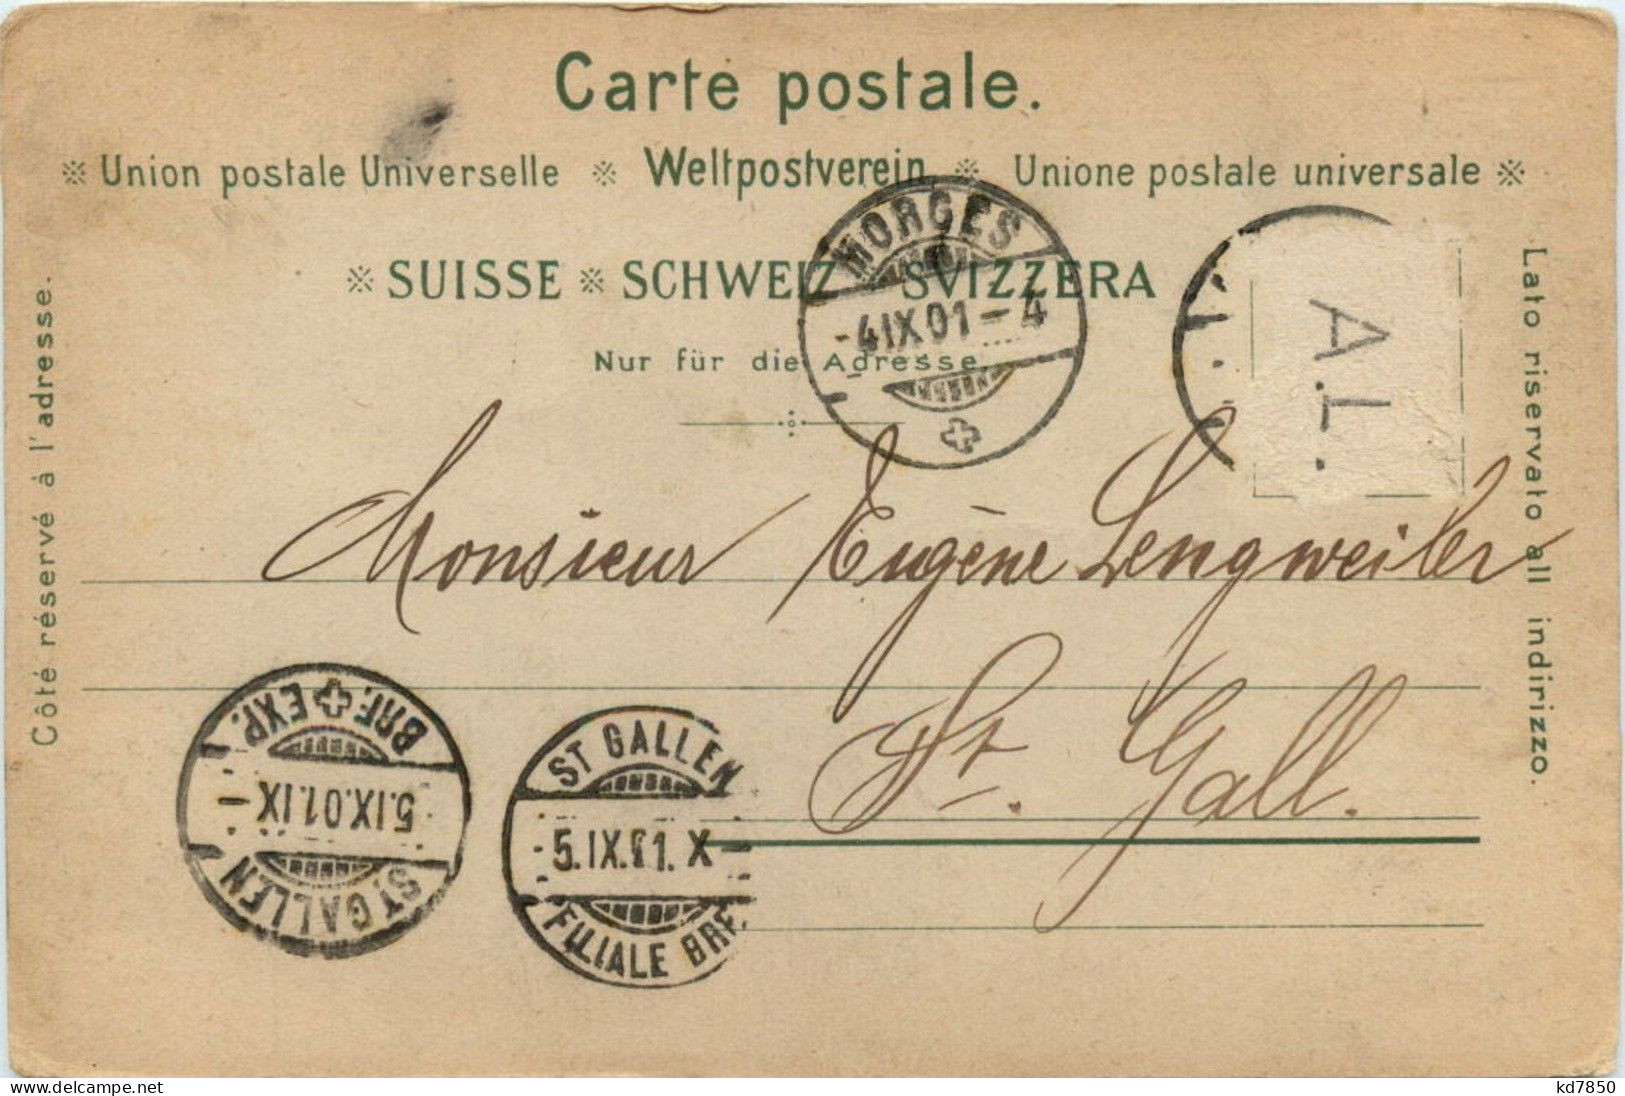 Carte postale.
※ Union postale Universelle ※ Weltpostverein ※ Unione postale universale ※
※ SUISSE ※ SCHWEIZ SVIZZERA
Nur für die Adresse.
Côté réservé à l'adresse.
Lato riservato all indirizzo.
MORGES
-4IX.01-4
A.L.
Monsieur Eugène Lengweiler
St. Gall.
BRF. EXP.
5.IX.01.IX-
ST GALLEN
ST GALLEN
5.IX.01. X-
FILIALE BRF.
www.delcampe.net
kd7850